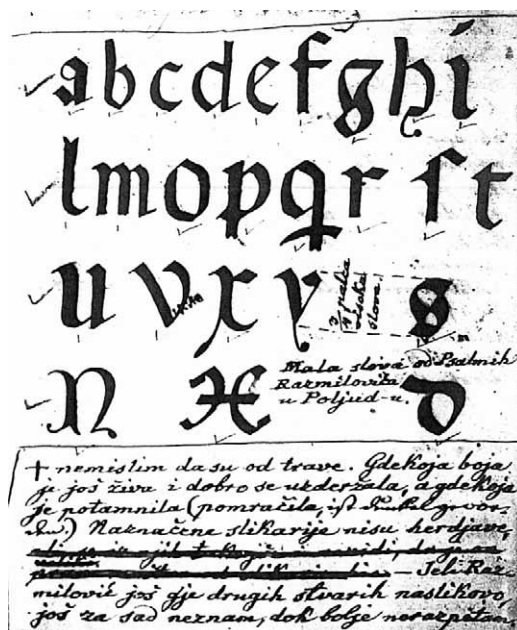 a b c d e f g h i
l m o p q r ſ t
u v x y s
3/4 palca
visoka
slova.
Mala slova od Psalmih
Razmilovića
u Poljud-u.
+ nemislim da su od trave. Gdekoja boja
je još živa i dobro se uzderžala, a gdekoja
je potamnila (pomračila, ist dunkel gewor-
den.) Naznačene slikarije nisu herdjave,
— Jeli Raz-
milović još gje drugih stvarih naslikovo,
još za sad neznam, dok bolje